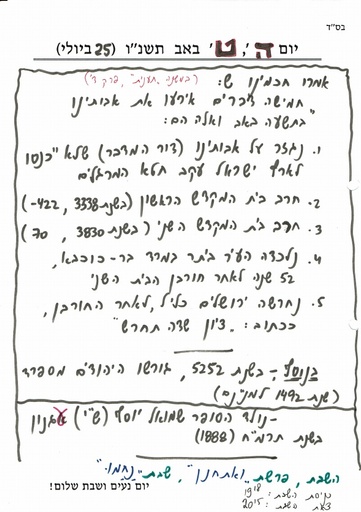 בס״ד
יום ה', ט' באב תשנ״ו (25 ביולי)
אמרו חכמינו ש: (במשנה "תענית", פרק ד')
חמישה דברים אירעו את אבותינו
בתשעה באב ואלה הם:
1. נגזר על אבותינו (דור המדבר) שלא ייכנסו
לארץ ישראל עקב חטא המרגלים
2. חרב בית המקדש הראשון (בשנת 3338, 422-)
3. חרב בית המקדש השני (בשנת 3830, 70)
4. נלכדה העיר ביתר במרד בר-כוכבא,
52 שנה לאחר חורבן הבית השני
5. נחרשה ירושלים כליל, לאחר החורבן,
ככתוב: "ציון שדה תחרש"
בנוסף - בשנת 5252, גורשו היהודים מספרד
(שנת 1492 למנינם)
- נולד הסופר שמואל יוסף (ש"י) עגנון
בשנת תרמ"ח (1888)
השבת, פרשת "ואתחנן", שבת "נחמו".
יום נעים ושבת שלום!
כניסת השבת: 19:18
צאת השבת: 20:15